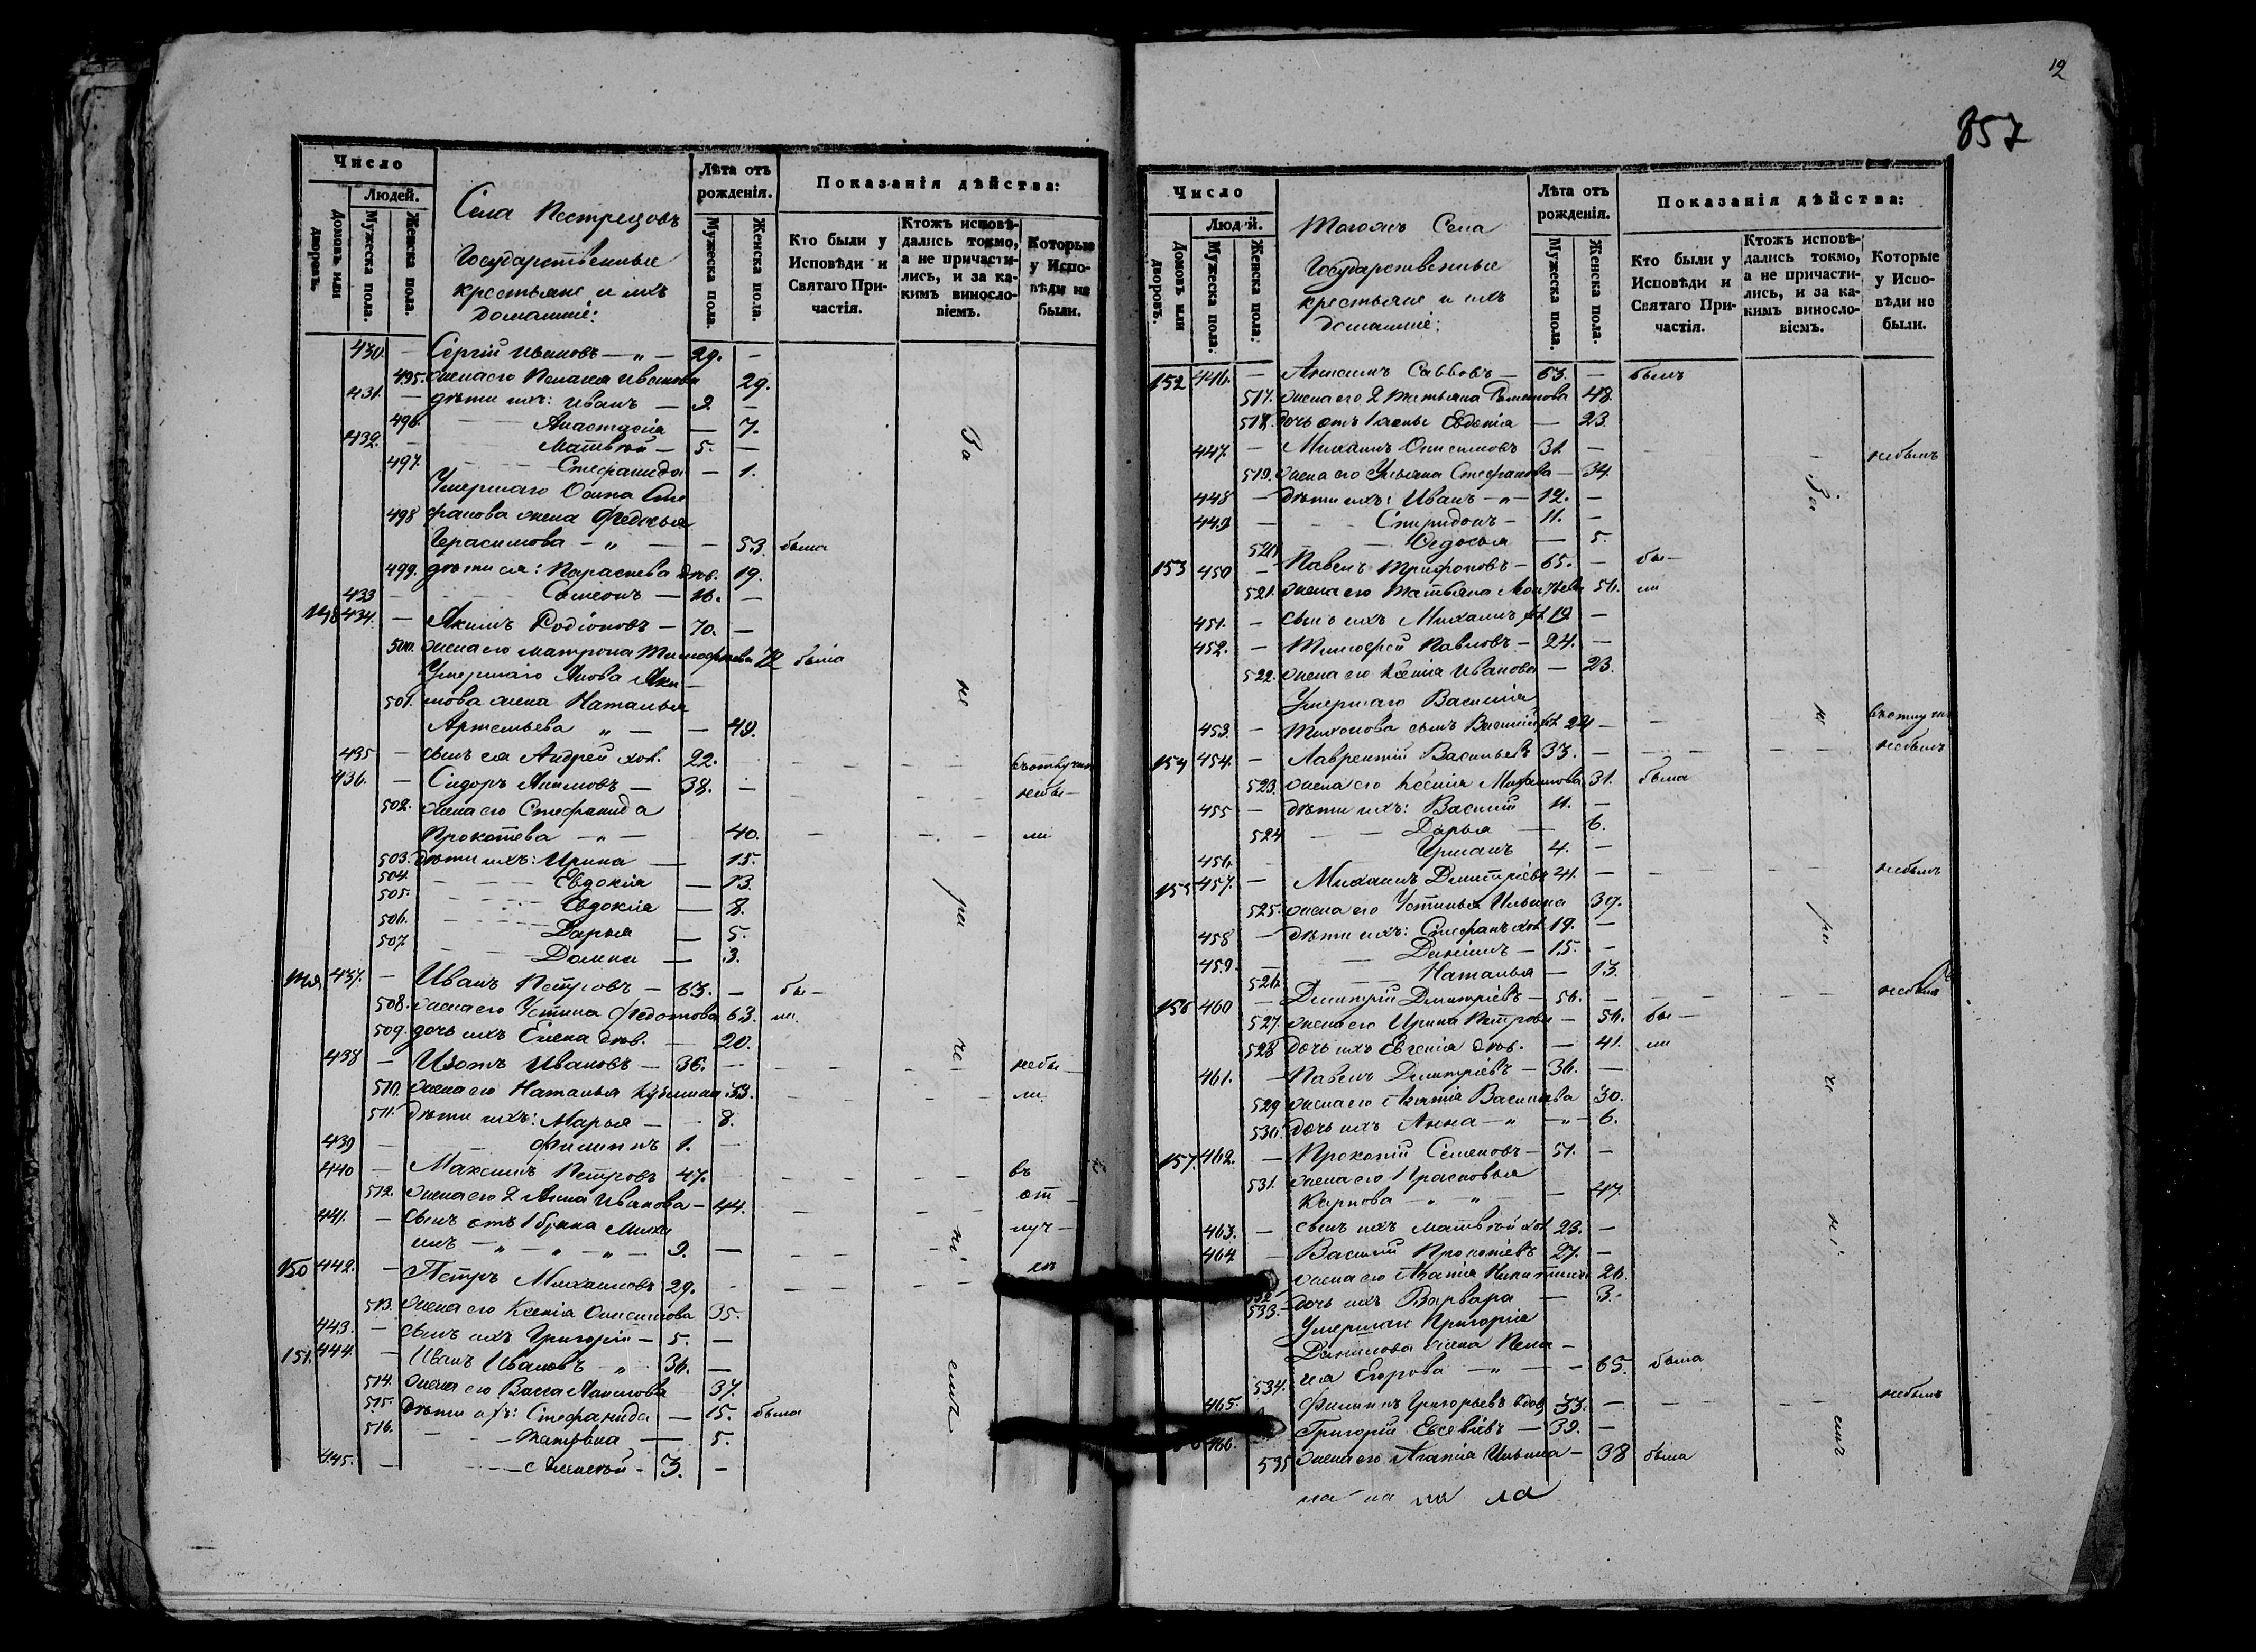 Число
Людей.
Домовъ или дворовъ.
Мужеска пола.
Женска пола.
Села Пестрецовъ
Государственные
крестьяне и ихъ
домашніе:
Лѣта отъ
рожденія.
Мужеска пола.
Женска пола.
Показанія дѣйства:
Кто были у
Исповѣди и
Святаго При-
частія.
Ктожъ исповѣ-
дались токмо,
а не причасти-
лись, и за ка-
кимъ винносло-
віемъ.
Которые
у Испо-
вѣди не
были.
430. — Сергій Ивановъ — „ — 29. —
495. жена его Пелагея Иванова 29.
431. — дѣти ихъ: Иванъ — 9. —
496. Анастасія — 7.
432. — Матвѣй — 5. —
497. Стефанида — 1.
Умершаго Осипа Сте
498 фанова жена Федосья
Герасимова — „ — — 53. была
499. дѣти ея: Параскева дѣв. 19.
433 — Симеонъ — 16. —
148 434. — Якимъ Родіоновъ — 70. —
500. жена его Матрона Тимофеева 72 была
Умершаго Якова Яки-
501. мова жена Наталья
Артемьева „ — — 49.
435 — сынъ ея Андрей хол. 22. въ отлучкѣ
436. — Сидоръ Акимовъ — 38. — небы-
502. жена его Стефанида
Прокопьева — „ — 40. ли
503. дѣти ихъ: Ирина — 15.
504. Евдокія — 13.
505. Евдокія — 8.
506. Дарья — 5.
507 Домна — 3.
149 437. — Иванъ Петровъ — 63. — бы-
508. жена его Устина Федотова 63. ли.
509. дочь ихъ Елена дѣв. — 20.
438 — Изотъ Ивановъ — 36. — небы-
510. жена его Наталья Кузьмина 33. ли.
511. дѣти ихъ: Марья — 8.
439 — Филиппъ 1. —
440 — Максимъ Петровъ 47. въ
512. жена его 2 Анна Иванова — 44. от-
441. — сынъ отъ 1 брака Миха
илъ — „ — „ — „ — 9. — луч-
150 442. — Петръ Михаиловъ 29. кѣ
513. жена его Ксенія Онисимова 35.
443. — сынъ ихъ Григорій — 5. —
151. 444. — Иванъ Ивановъ „ 36. —
514. жена его Васса Акимова 37.
515. дѣти ихъ: Стефанида — 15. была
516. Татьяна — 5.
445. — Алексѣй — 3. —
За не ра че ні емъ
12
857
Число
Людей.
Домовъ или дворовъ.
Мужеска пола.
Женска пола.
Тогожъ Села
Государственные
крестьяне и ихъ
домашніе:
Лѣта отъ
рожденія.
Мужеска пола.
Женска пола.
Показанія дѣйства:
Кто были у
Исповѣди и
Святаго При-
частія.
Ктожъ исповѣ-
дались токмо,
а не причасти-
лись, и за ка-
кимъ винносло-
віемъ.
Которые
у Испо-
вѣди не
были.
152 446. — Анисимъ Савовъ — 63. — былъ
517. жена его 2 Татьяна 48.
518. дочь отъ 1 жены Евдокія — 23.
447. — Михаилъ Онисимовъ 31. — небылъ
519. жена его Ульяна Стефанова — 34.
448 — дѣти ихъ: Иванъ — „ — 12. —
449 — Спиридонъ — 11. —
520. Федосья — 5.
153 450 — Павелъ Трифоновъ — 65. — бы-
521. жена его Татьяна 56. ли
451. — сынъ ихъ Михаилъ хол 19 —
452. — Тимофей Павловъ — 24. —
522. жена его Ксенія Иванова — 23.
Умершаго Василія
453. — Тихонова сынъ Василій хол 22 — въ отлучкѣ
154 454. — Лаврентій Васильевъ 33. — небылъ
523. жена его Ксенія 31. была
455 — дѣти ихъ: Василій 11. —
524 Дарья — 6.
456. — Германъ 4. —
155 457. — Михаилъ Дмитріевъ 41. — небылъ
525. жена его Устинья Ильина 39.
458 — дѣти ихъ: Стефанъ хол 19. —
459. — Даніилъ — 15. —
526. Наталья — 13.
156 460 — Дмитрій Дмитріевъ — 56. — небылъ
527. жена его Ирина Петрова — 56. бы-
528 дочь ихъ Евгенія дѣв. — 41. ли
461. — Павелъ Дмитріевъ — 36. —
529 жена его Агапія Васильева 30.
530. дочь ихъ Анна — „ — „ — 6.
157. 462. — Прокопій Семеновъ — 51. —
531. жена его Прасковья
Карпова — „ — „ — 47.
463. — сынъ ихъ Матвѣй хол 23. —
464 — Василій Прокопіевъ 27. —
532 жена его Агапія Никитина 26.
533. дочь ихъ Варвара — 3.
Умершаго Григорія
Данилова жена Пела-
534. гея Егорова — „ — — 65. была
465. Филиппъ Григорьевъ вдов 33. — небылъ
466. Григорій Евсевіевъ — 39. —
535 жена его Агапія Ильина — 38 была
За не ра че ні емъ